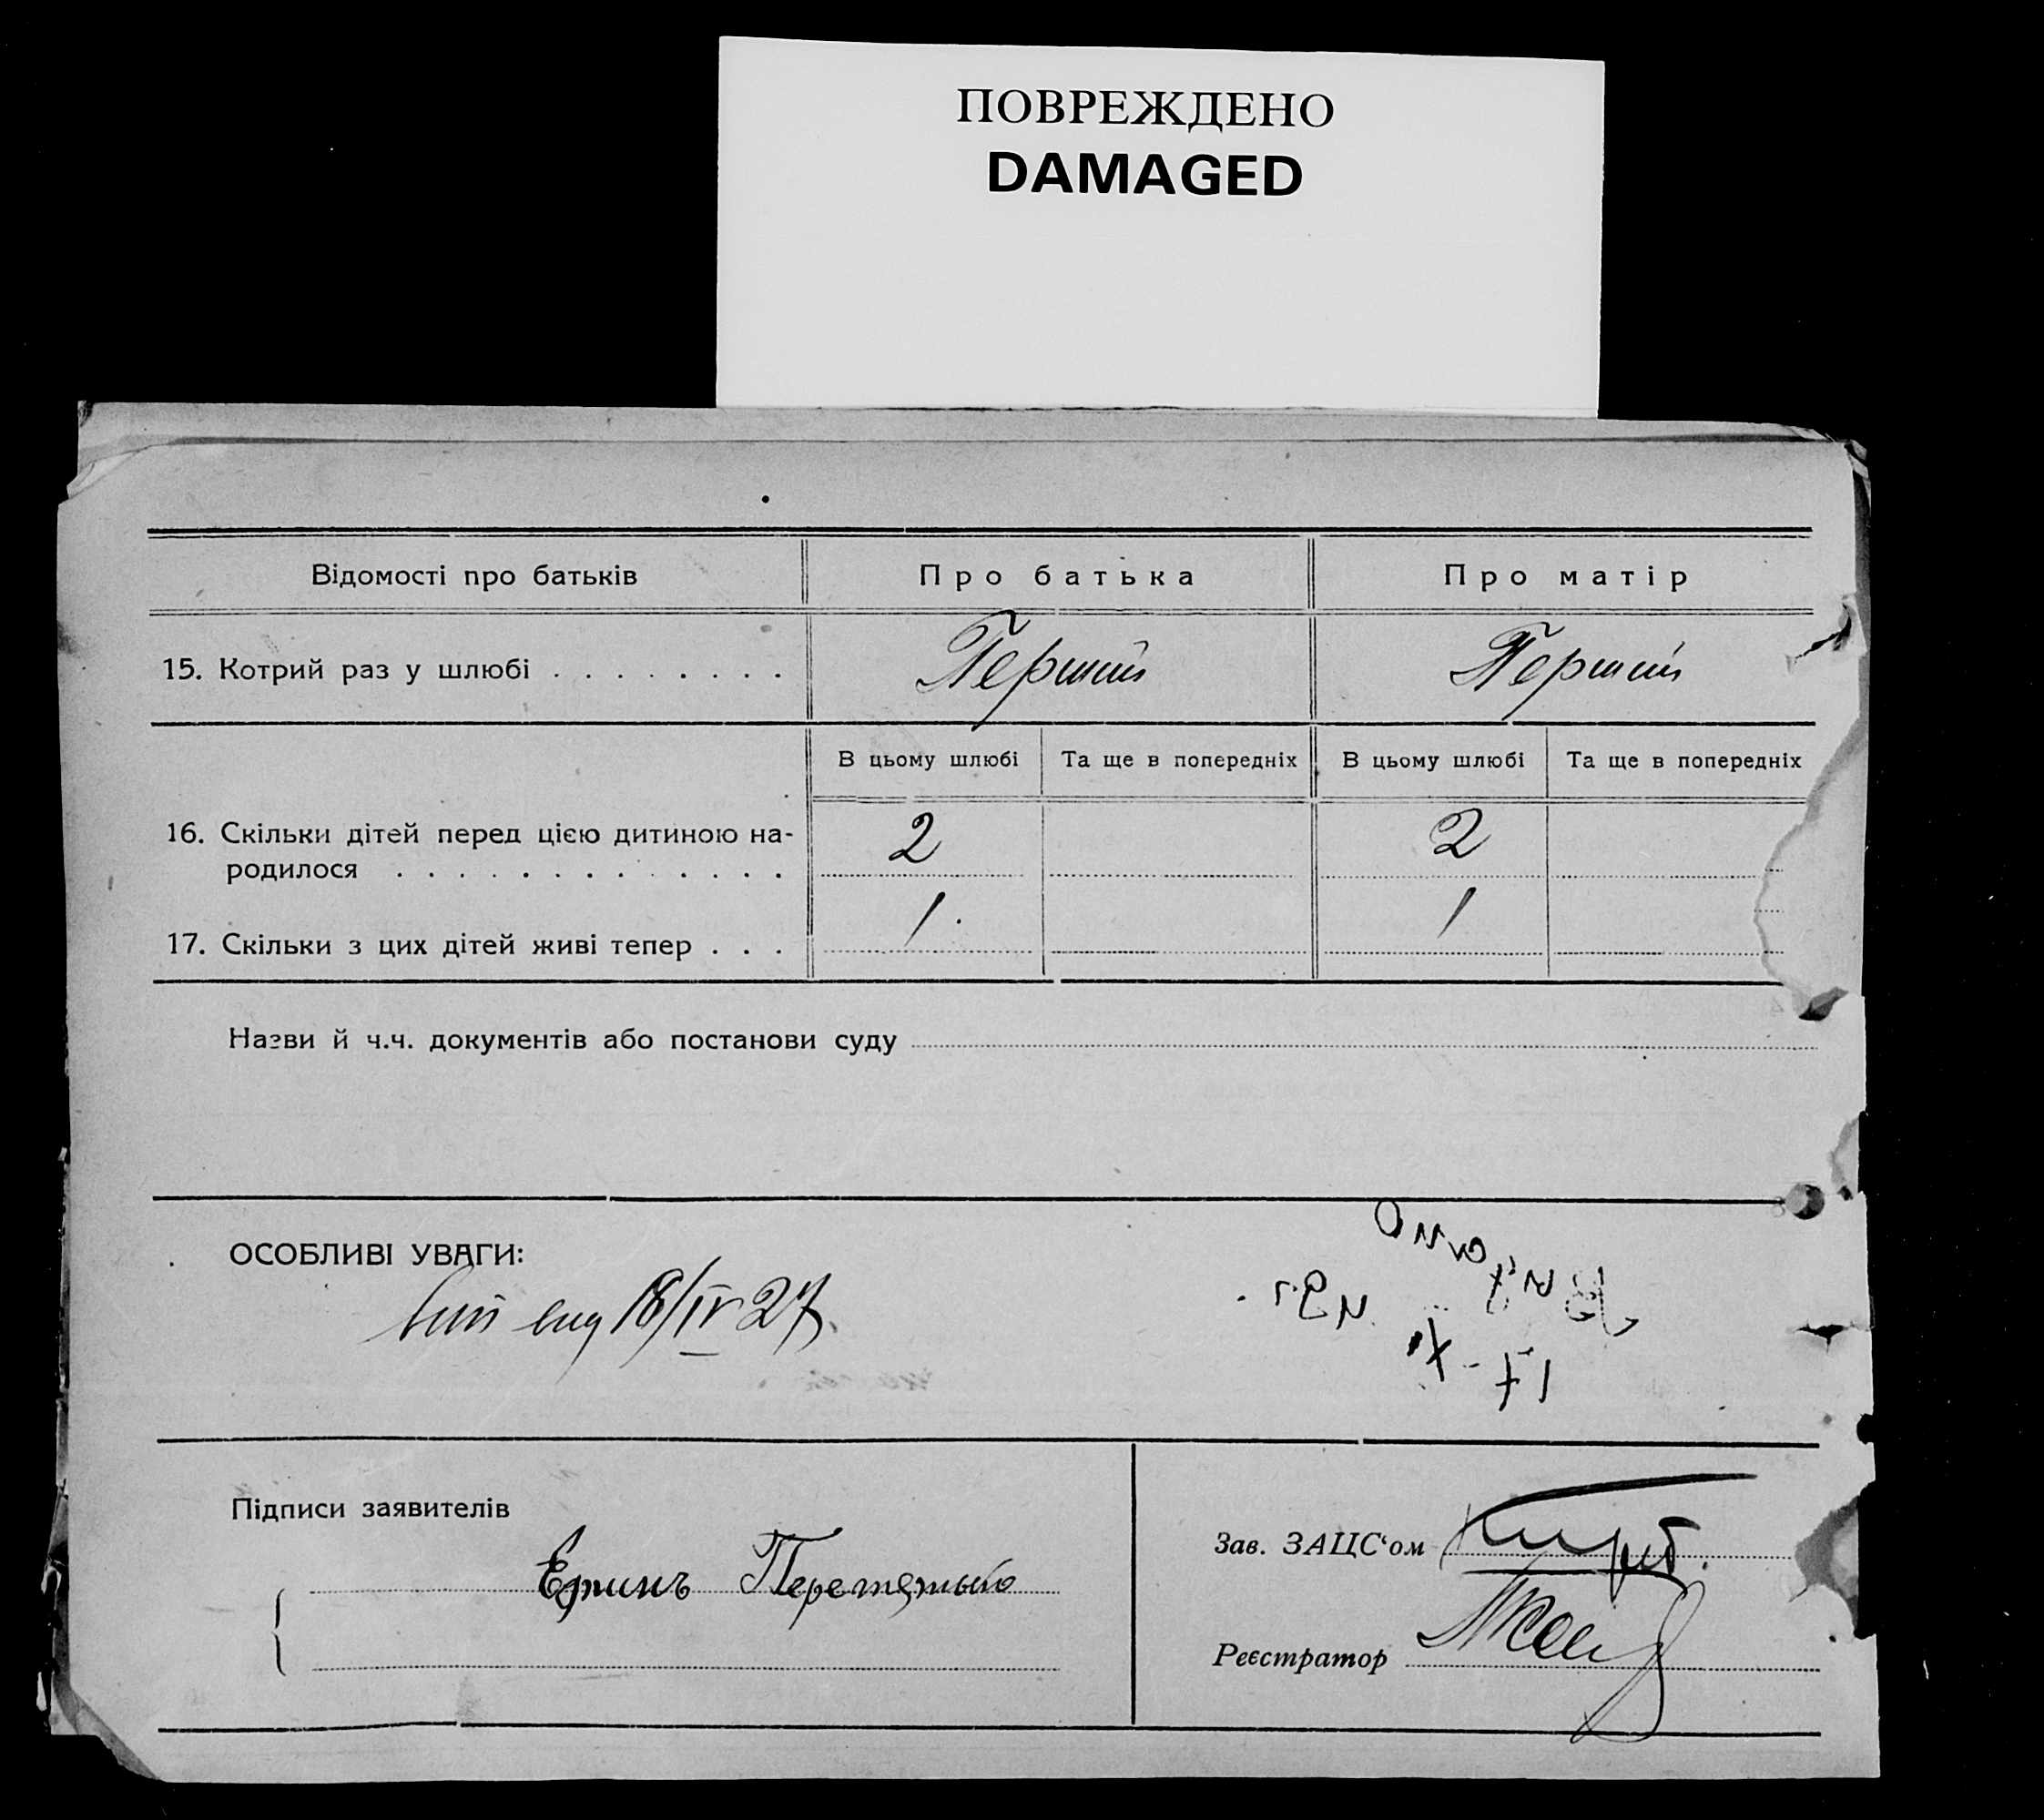 ПОВРЕЖДЕНО
DAMAGED
Відомості про батьків Про батька Про матір
15. Котрий раз у шлюбі . . . . . . . . Перший Перший
В цьому шлюбі Та ще в попередніх В цьому шлюбі Та ще в попередніх
16. Скільки дітей перед цією дитиною на-
родилося . . . . . . . . . . . . . . 2 2
17. Скільки з цих дітей живі тепер . . . 1. 1
Назви й ч.ч. документів або постанови суду
ОСОБЛИВІ УВАГИ:
18/IV 27
17-X
Підписи заявителів
Зав. ЗАЦС‘ом
Реєстратор